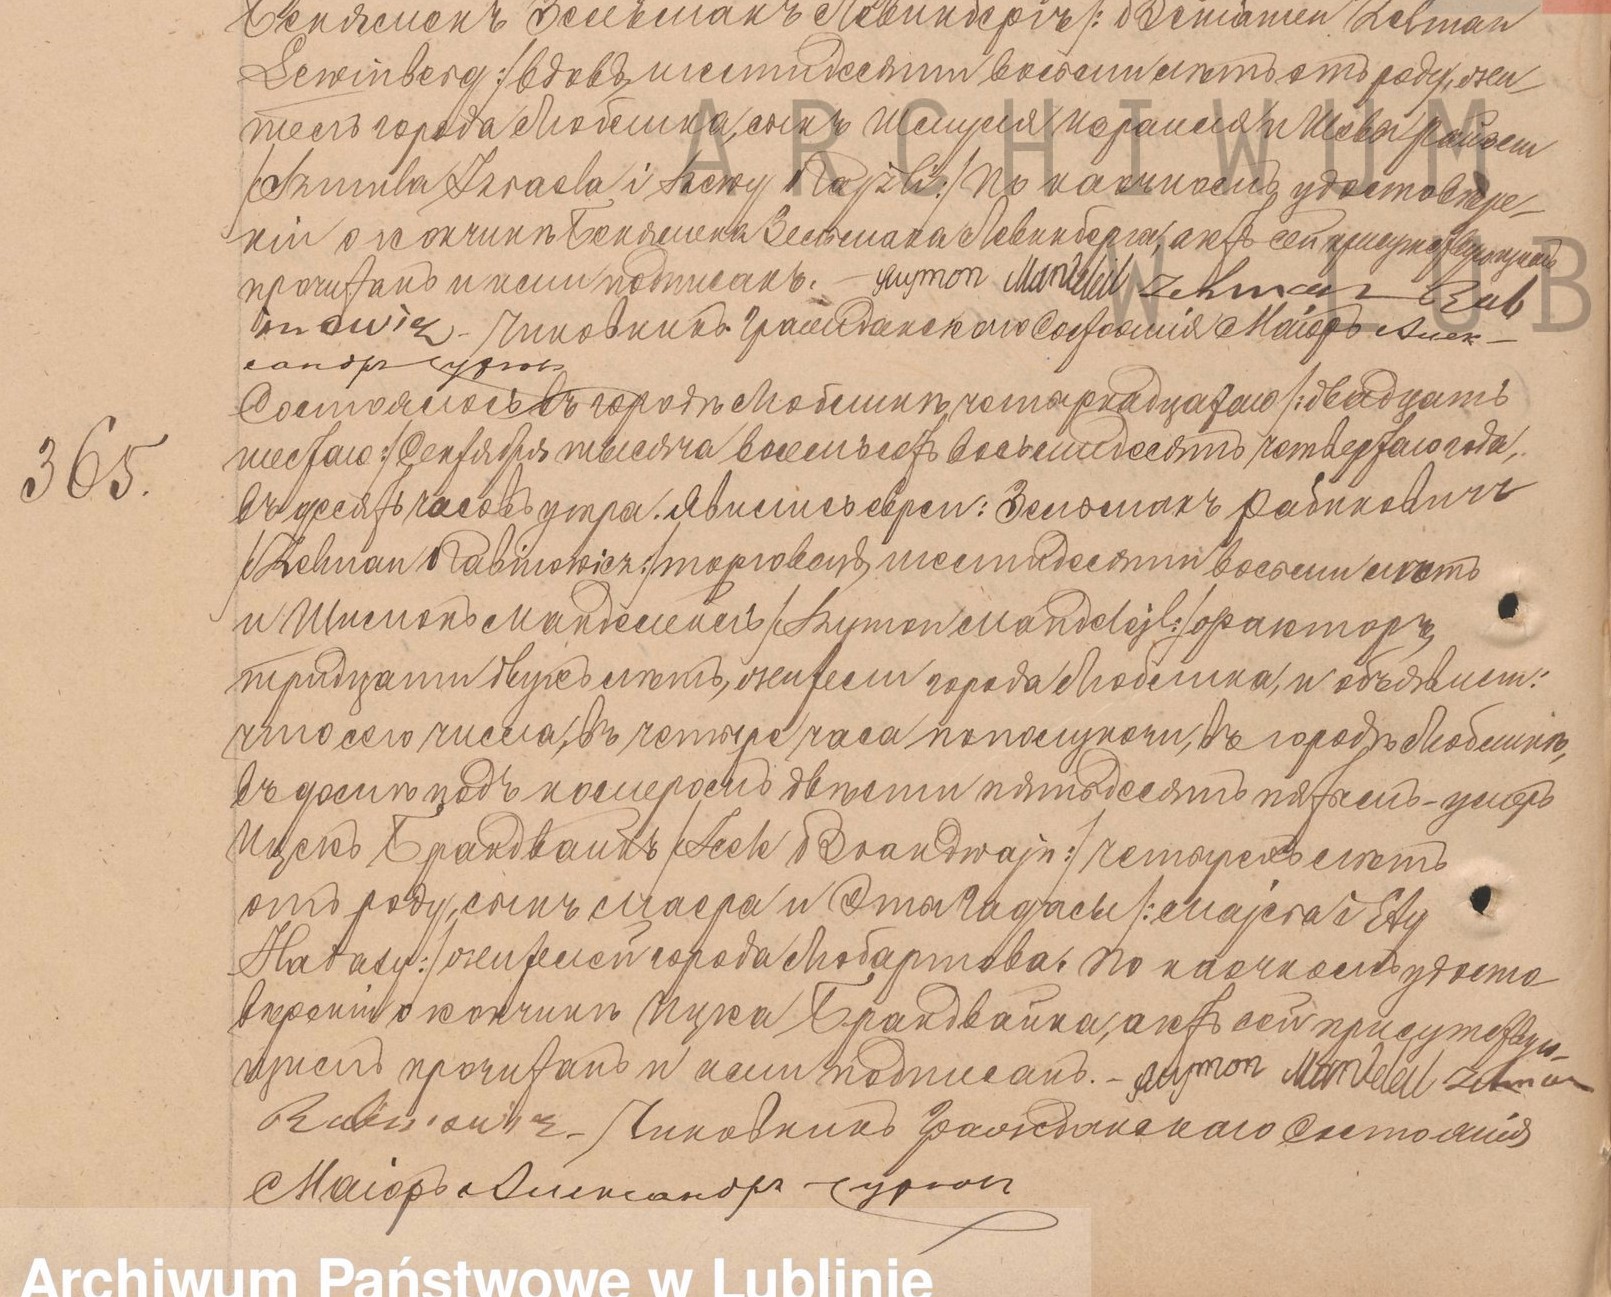 Беніяменъ Зельманъ Левинбергъ /: Beniamen Zelman
Lewinberg :/ вдовъ, шестидесяти восьми лѣтъ отъ роду, жи
тель города Люблина, сынъ Шмуля Израиля и Шевы Райзли
/: Szmula Izraela i Szewy Rajzli :/ По наочномъ удостовѣре-
ніи о кончинѣ Беніямена Зельмана Левинберга, актъ сей присутствующимъ
прочитанъ и нами подписанъ. – Szymon Mandelejl Zelman Rab
inowicz – Чиновникъ Гражданскаго Состоянія Маіоръ Алек-
сандръ
365.
Состоялось въ городѣ Люблинѣ, четырнадцатаго /: двадцать
шестаго :/ Сентября тысяча восемьсотъ восемьдесятъ четвертаго года,
въ десять часовъ утра. Явились евреи: Зельманъ Рабиновичъ
/: Zelman Rabinowicz :/ торговецъ, шестидесяти восьми лѣтъ
и Шимонъ Мандельейль /: Szymon Mandelejl :/ факторъ,
тридцати двухъ лѣтъ, жители города Люблина, и объявили:
что сего числа, въ четыре часа пополуночи, въ городѣ Люблинѣ,
въ домѣ подъ номеромъ двѣсти пятьдесятъ пятымъ – умеръ
Ицекъ Брандвайнъ /: Icek Brandwajn :/ четырехъ лѣтъ
отъ роду, сынъ Маера и Эты Гадасы /: Majera i Ety
Hadasy :/ жителей города Любартова. По наочномъ удосто
вѣреніи о кончинѣ Ицка Брандвайна, актъ сей присутствую-
щимъ прочитанъ и нами подписанъ. – Szymon Mandelejl Zelman
Rabinowicz – Чиновникъ Гражданскаго Состоянія
Маіоръ Александръ
ARCHIWUM
W LUB
Archiwum Państwowe w Lublinie